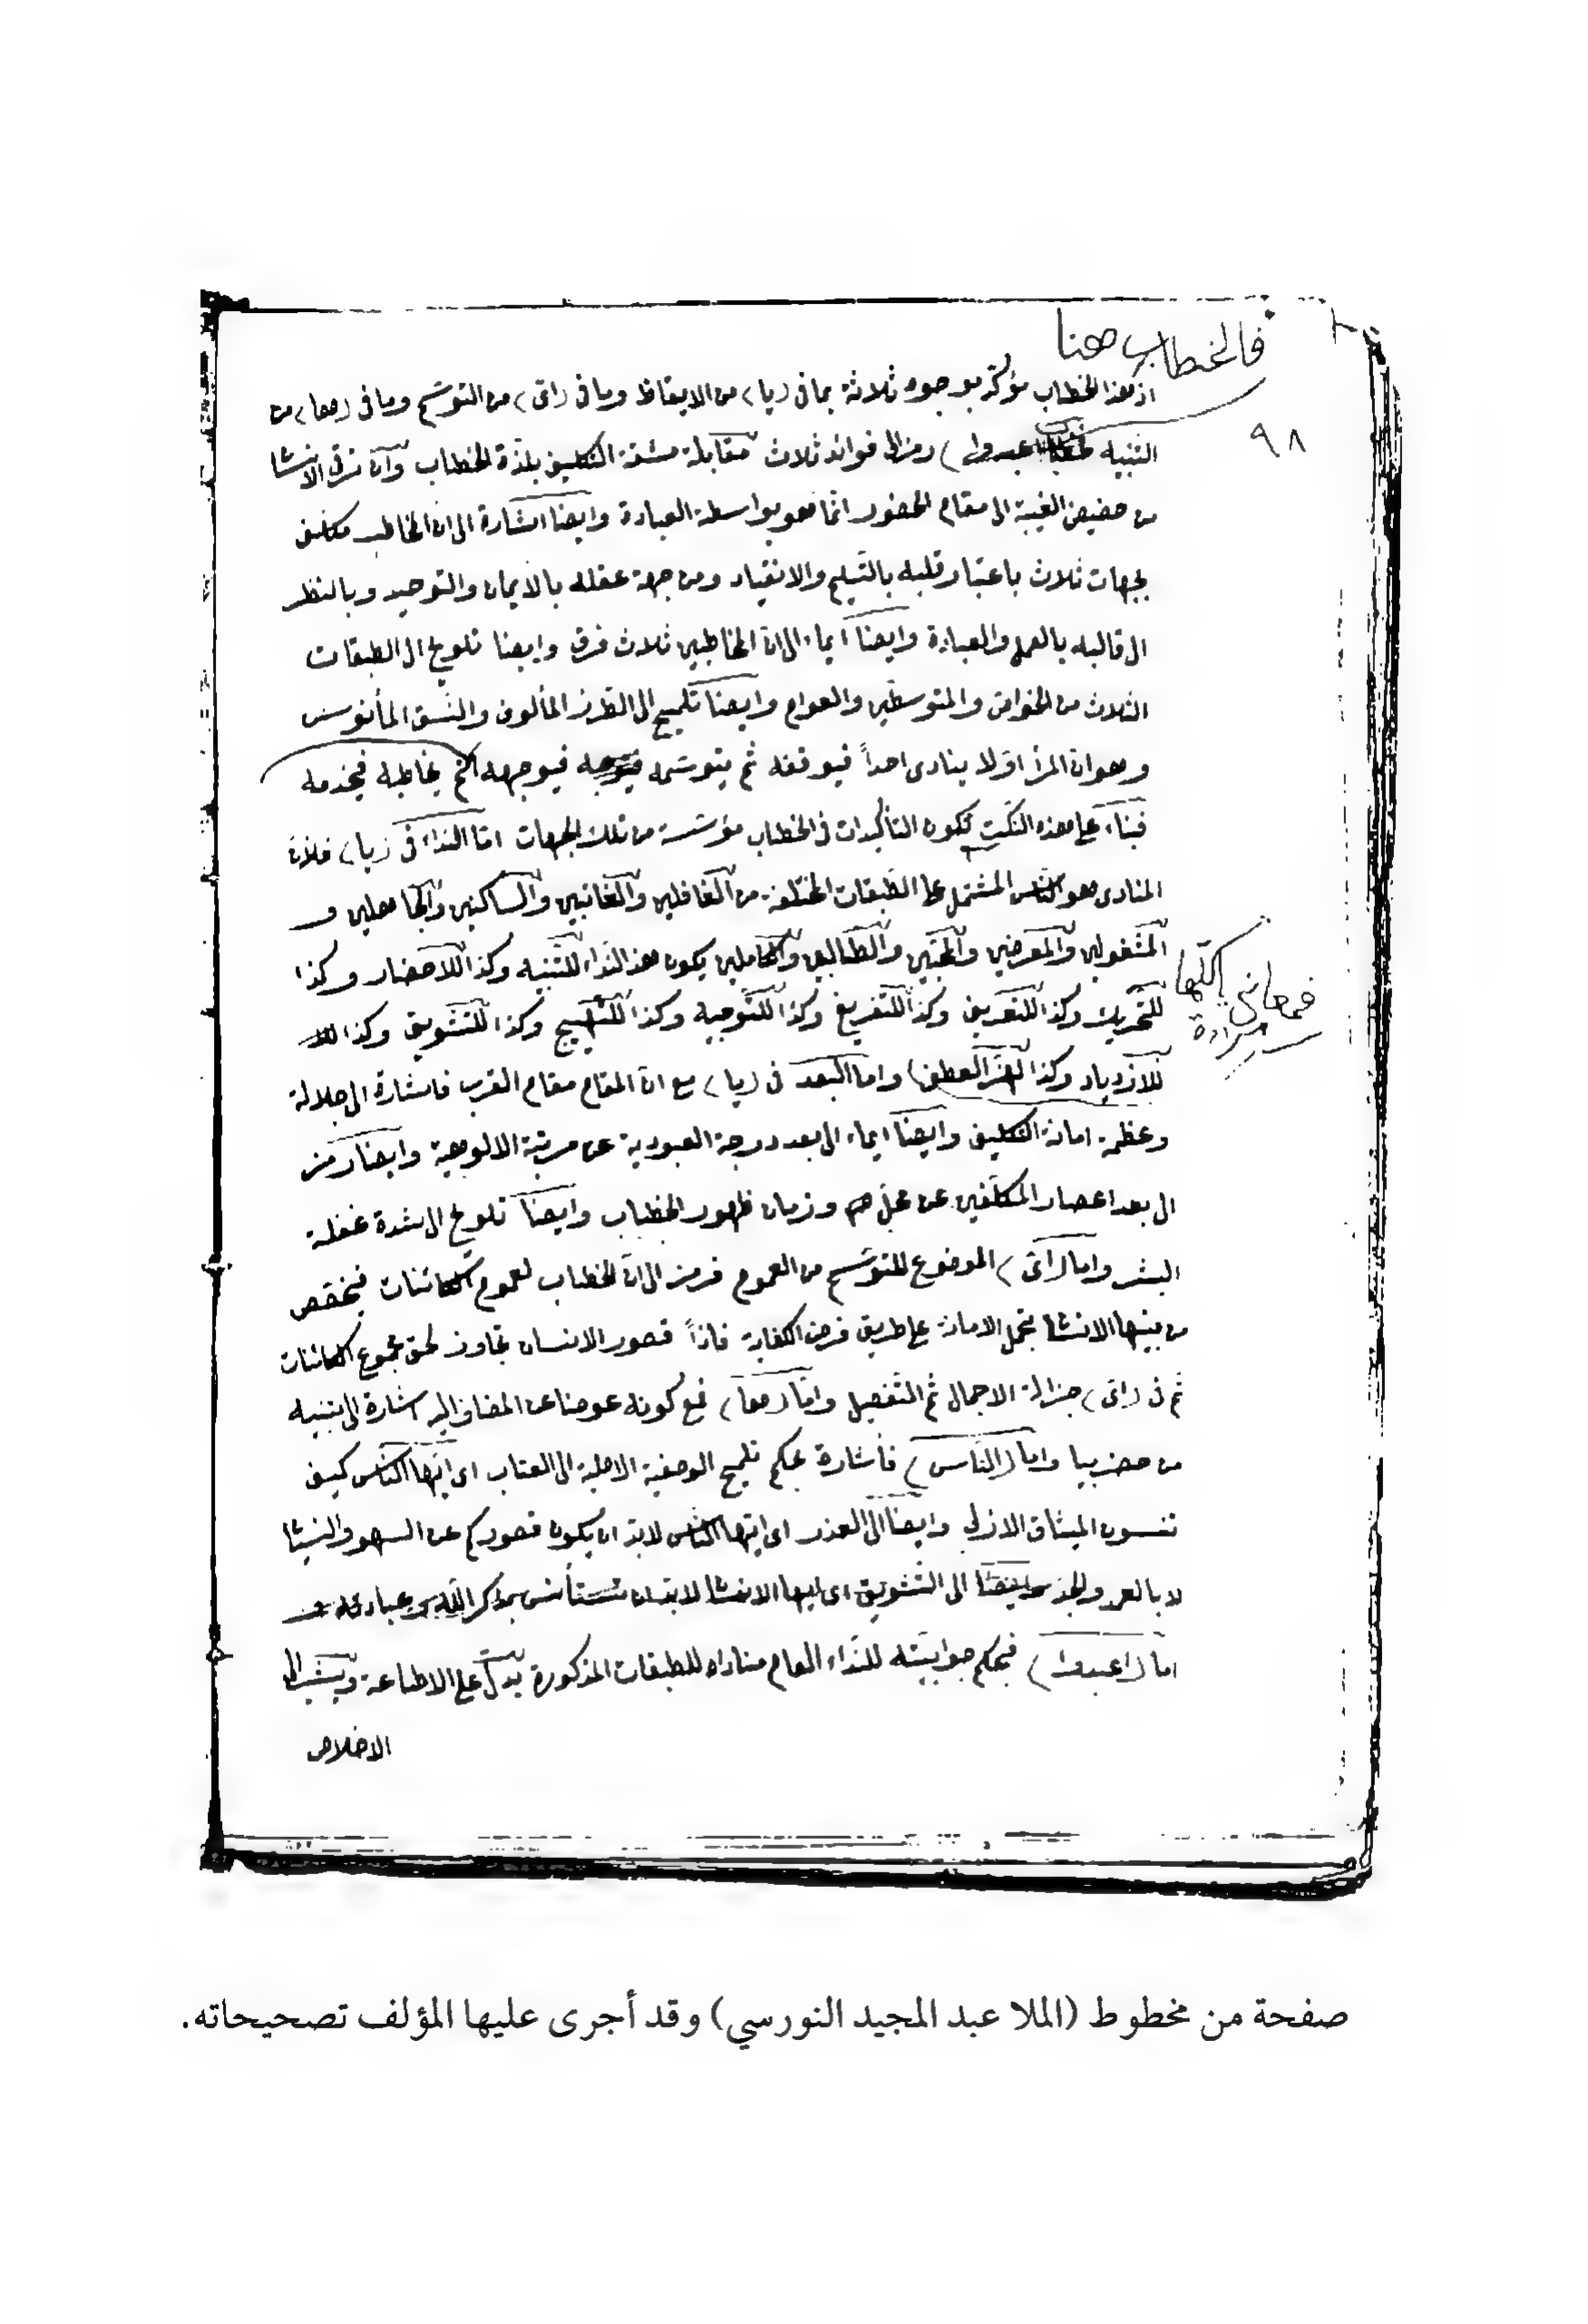 فالخطاب هنا
اذ هذا الخطاب مؤكّد بوجوه ثلاثة بما فى (يا) من الايقاظ وما فى (اىّ) من التوسّم وما فى (ها) من
٩٨
التنبيه (اعبدوا) رمز الى فوائد ثلاث مقابلة مشقة التكليف بلذّة الخطاب وانّ ترقى الانسا
من حضيض الغيبة الى مقام الحضور انّما هو بواسطة العبادة وايضا اشارة الى ان المخاطب مكلف
بجهات ثلاث باعتبار قلبه بالتسليم والانقياد ومن جهة عقله بالايمان والتوحيد وبالنظر
الى قالبه بالعمل والعبادة وايضا ايماء الى انّ المخاطبين ثلاث فرق وايضا تلويح الى الطبقات
الثلاث من الخواصّ والمتوسطين والعوام وايضا تلميح الى الطرز المألوف والنسق المأنوس
وهو ان المرأ اوّلا ينادى احداً فيوقفه ثم يتوسّمه فيوجهه ثم يخاطبه فيخدمه
فبناء على هذه النكت تكون التأكيدات فى الخطاب مؤسّسة من تلك الجهات امّا النداء فى (يا) فلانّ
المنادى هو الناس المشتمل على الطبقات المختلفة من الغافلين والغائبين والساكنين والجاهلين و
المشغولين والمعرضين والمحبّين والطالبين والكاملين يكون هذا النداء للتنبيه وكذا للاحضار وكذا
فمعانى كلّها
مرادة
للتحريك وكذا للتعريف وكذا للتفريغ وكذا للتوجيه وكذا للتهييج وكذا للتشويق وكذا
للازدياد وكذا لهزّ العطف) واما البعد فى (يا) مع انّ المقام مقام القرب فاشارة الى جلالة
وعظمة امانة التكليف وايضا ايماء الى بعد درجة العبودية عن مرتبة الالوهية وايضا رمز
الى بعد اعصار المكلّفين عن محلّ وزمان ظهور الخطاب وايضا تلويح الى شدة غفلة
البشر واما (اىّ) الموضوع للتوسّم من العموم فرمز الى انّ الخطاب لعموم الكائنات فيخصّص
من بينها الانسا بتحمل الامانة على طريق فرض الكفاية فاذاً قصور الانسان تجاوز لحق مجموع الكائنات
ثم فى (اىّ) جزالة الاجمال ثم التفصيل وامّا (ها) فمع كونه عوضا عن المضاف اليه اشارة الى تنبيه
من حضر بيا واما (الناس) فاشارة بحكم تلميح الوصفية الاصلية الى العتاب اى ايّها الناس كيف
تنسون الميثاق الازلى وايضا الى العذر اى ايّها الناس لابدّ ان يكون قصوركم عن السهو والنسيا
لا بالعمد والجدّ وايضا الى التشويق اى ايها الانسا لابد ان تستأنس بذكر الله وعبادته و
اما (اعبدوا) فبحكم جوابيّته للنّداء العام مناداه للطبقات المذكورة يدلّ على الاطاعة ويشير الى
الاخلاص
صفحة من مخطوط (الملا عبد المجيد النورسي) وقد أجرى عليها المؤلف تصحيحاته.